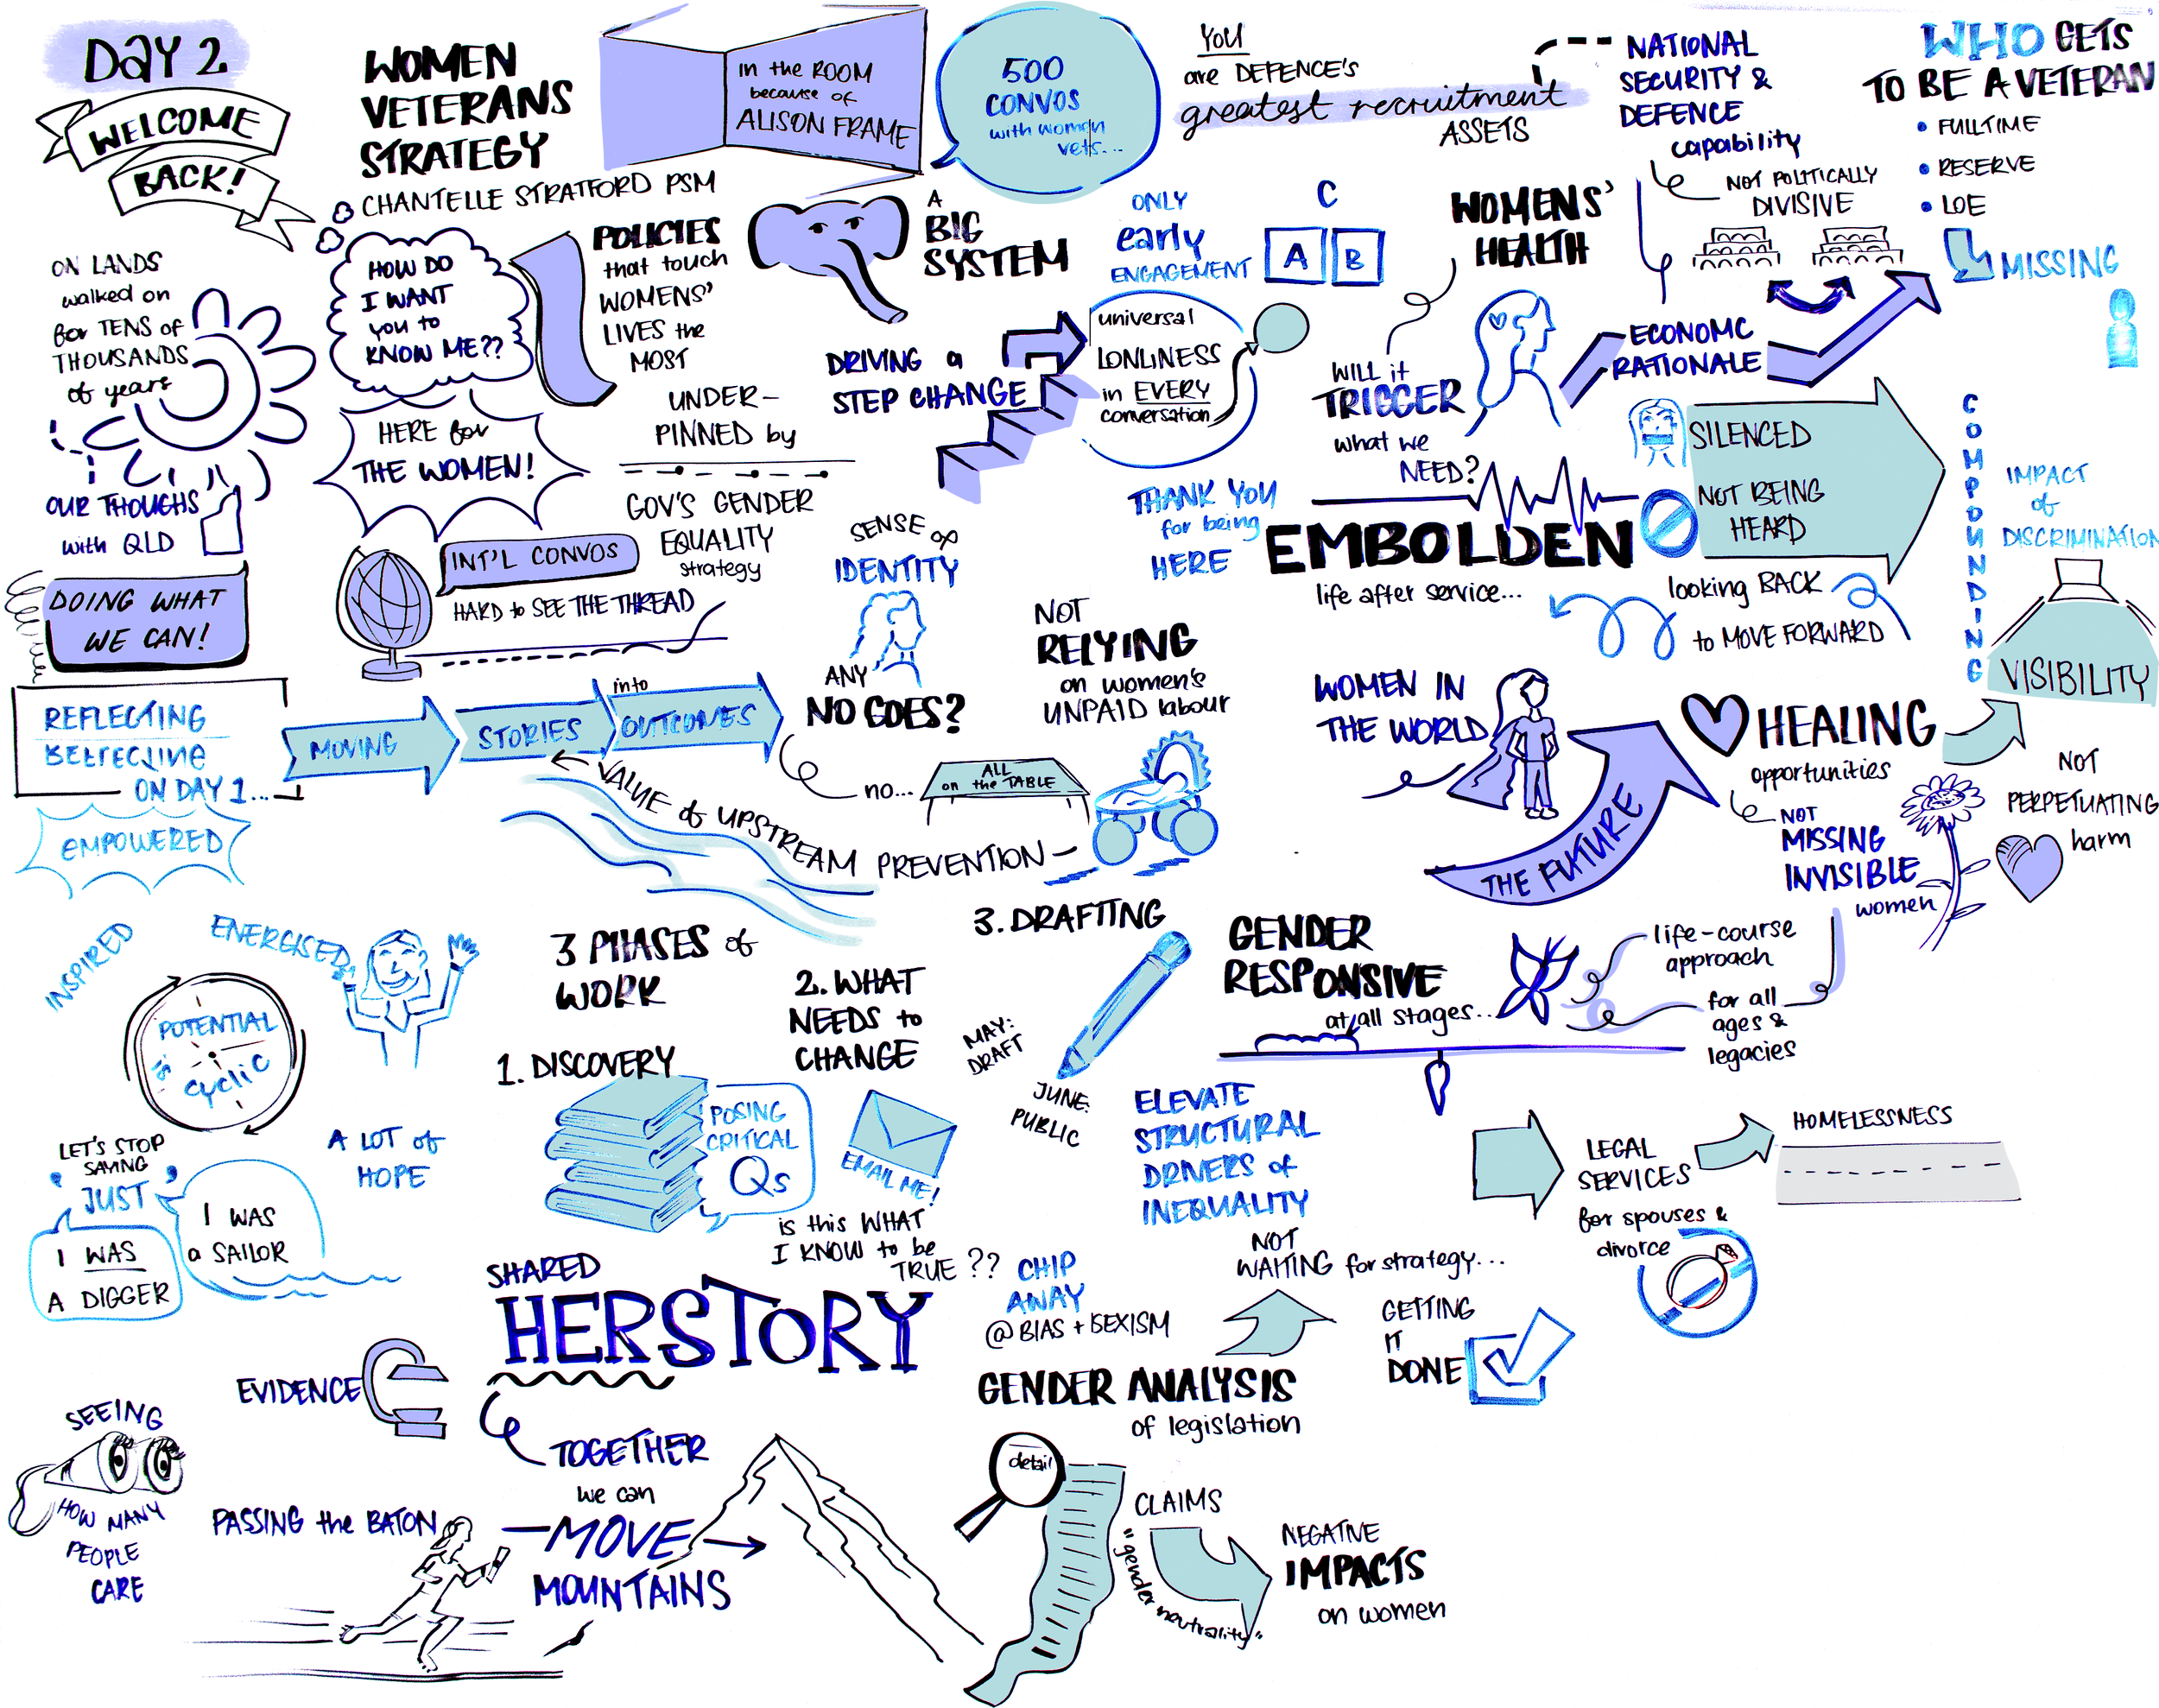 DAY 2
WELCOME
BACK!
ON LANDS
walked on
for TENS of
THOUSANDS
of years
OUR THOUGHS
with QLD
DOING WHAT
WE CAN!
REFLECTING
REFLECTING
ON DAY 1...
EMPOWERED
INSPIRED
ENERGISED
POTENTIAL
is
cyclic
A LOT of
HOPE
LET'S STOP
SAYING
'JUST'
I WAS
A DIGGER
I WAS
a SAILOR
EVIDENCE
SEEING
HOW MANY
PEOPLE
CARE
PASSING the BATON
WOMEN
VETERANS
STRATEGY
CHANTELLE STRATFORD PSM
HOW DO
I WANT
you to
KNOW ME??
HERE for
THE WOMEN!
INT'L CONVOS
HARD to SEE THE THREAD
in the ROOM
because of
ALISON FRAME
500
CONVOS
with women
vets...
POLICIES
that touch
WOMENS'
LIVES the
MOST
UNDER-
PINNED by
GOV'S GENDER
EQUALITY
strategy
A
BIG
SYSTEM
DRIVING a
STEP CHANGE
MOVING
STORIES
into
OUTCOMES
VALUE of UPSTREAM PREVENTION
SENSE of
IDENTITY
ANY
NO GOES?
no...
ALL
on the TABLE
NOT
RELYING
on women's
UNPAID labour
YOU
are DEFENCE'S
greatest recruitment
ASSETS
ONLY
early
ENGAGEMENT
A
B
C
universal
LONLINESS
in EVERY
conversation
THANK YOU
for being
HERE
WOMENS'
HEALTH
WILL it
TRIGGER
what we
NEED?
EMBOLDEN
life after service...
NATIONAL
SECURITY &
DEFENCE
capability
NOT POLITICALLY
DIVISIVE
ECONOMC
RATIONALE
WHO GETS
TO BE A VETERAN
• FULLTIME
• RESERVE
• LOE
MISSING
SILENCED
NOT BEING
HEARD
COMPOUNDING
IMPACT
of
DISCRIMINATION
looking BACK
to MOVE FORWARD
VISIBILITY
WOMEN IN
THE WORLD
THE FUTURE
HEALING
opportunities
NOT
MISSING
INVISIBLE
women
NOT
PERPETUATING
harm
3 PHASES of
WORK
1. DISCOVERY
POSING
CRITICAL
Qs
2. WHAT
NEEDS to
CHANGE
EMAIL ME!
is this WHAT
I KNOW to be
TRUE ??
3. DRAFTING
MAY:
DRAFT
JUNE:
PUBLIC
GENDER
RESPONSIVE
at all stages...
life-course
approach
for all
ages &
legacies
ELEVATE
STRUCTURAL
DRIVERS of
INEQUALITY
LEGAL
SERVICES
for spouses &
divorce
HOMELESSNESS
NOT
WAITING for strategy...
GETTING
IT
DONE
CHIP
AWAY
@ BIAS + SEXISM
SHARED
HERSTORY
TOGETHER
we can
MOVE
MOUNTAINS
GENDER ANALYSIS
of legislation
detail
CLAIMS
"gender neutrality"
NEGATIVE
IMPACTS
on women